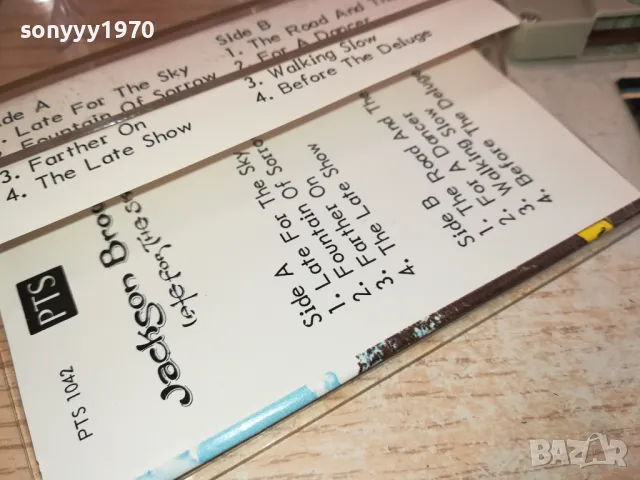 sonyyy1970
Side B
1. The Road And
2. For A Dancer
3. Walking Slow
4. Before The Deluge
Side A
Late For The Sky
Fountain Of Sorrow
3. Farther On
4. The Late Show
PTS
PTS 1042
Jackson
Late For The
Side A
1. Late For The Sky
2. Fountain Of
3. Farther On
4. The Late Show
Side B
1. The Road And The
2. For A Dancer
3. Walking Slow
4. Before The Deluge
BAZAR
bg